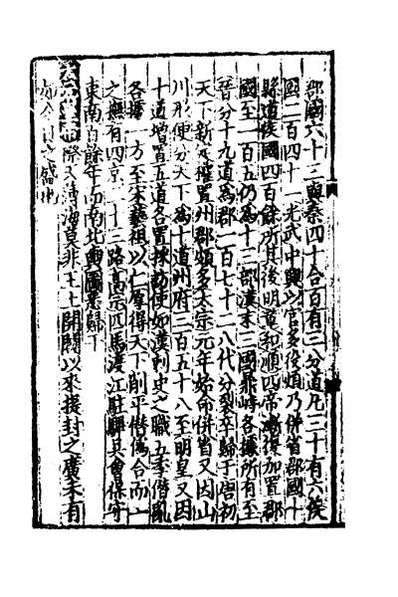 郡國六十三與秦四十合百有三分道凡三十有六侯
國二百四十一光武中興以官多役煩乃併省郡國十
縣道侯國四百餘所其後明章和順匹帝漸復加置郡
國至一百五仍為十三部漢末三國鼎峙各據所有至
晉分十九道為郡一百七十二八代分裂卒歸于唐初
天下新定權置州郡頗多太宗元年始命併省又因山
川形便分天下為十道州府三百五十八至明皇又因
十道增置五道各置採訪使如漢刺史之職五季僭亂
各據一方至宋藝祖以仁厚得天下削平僭偽合而一
之撫有四京二十三路高宗匹馬渡江駐驆吳會保守
東南百餘年而南北輿圖悉歸于
際天薄海莫非王土開闢以來提封之廣未有